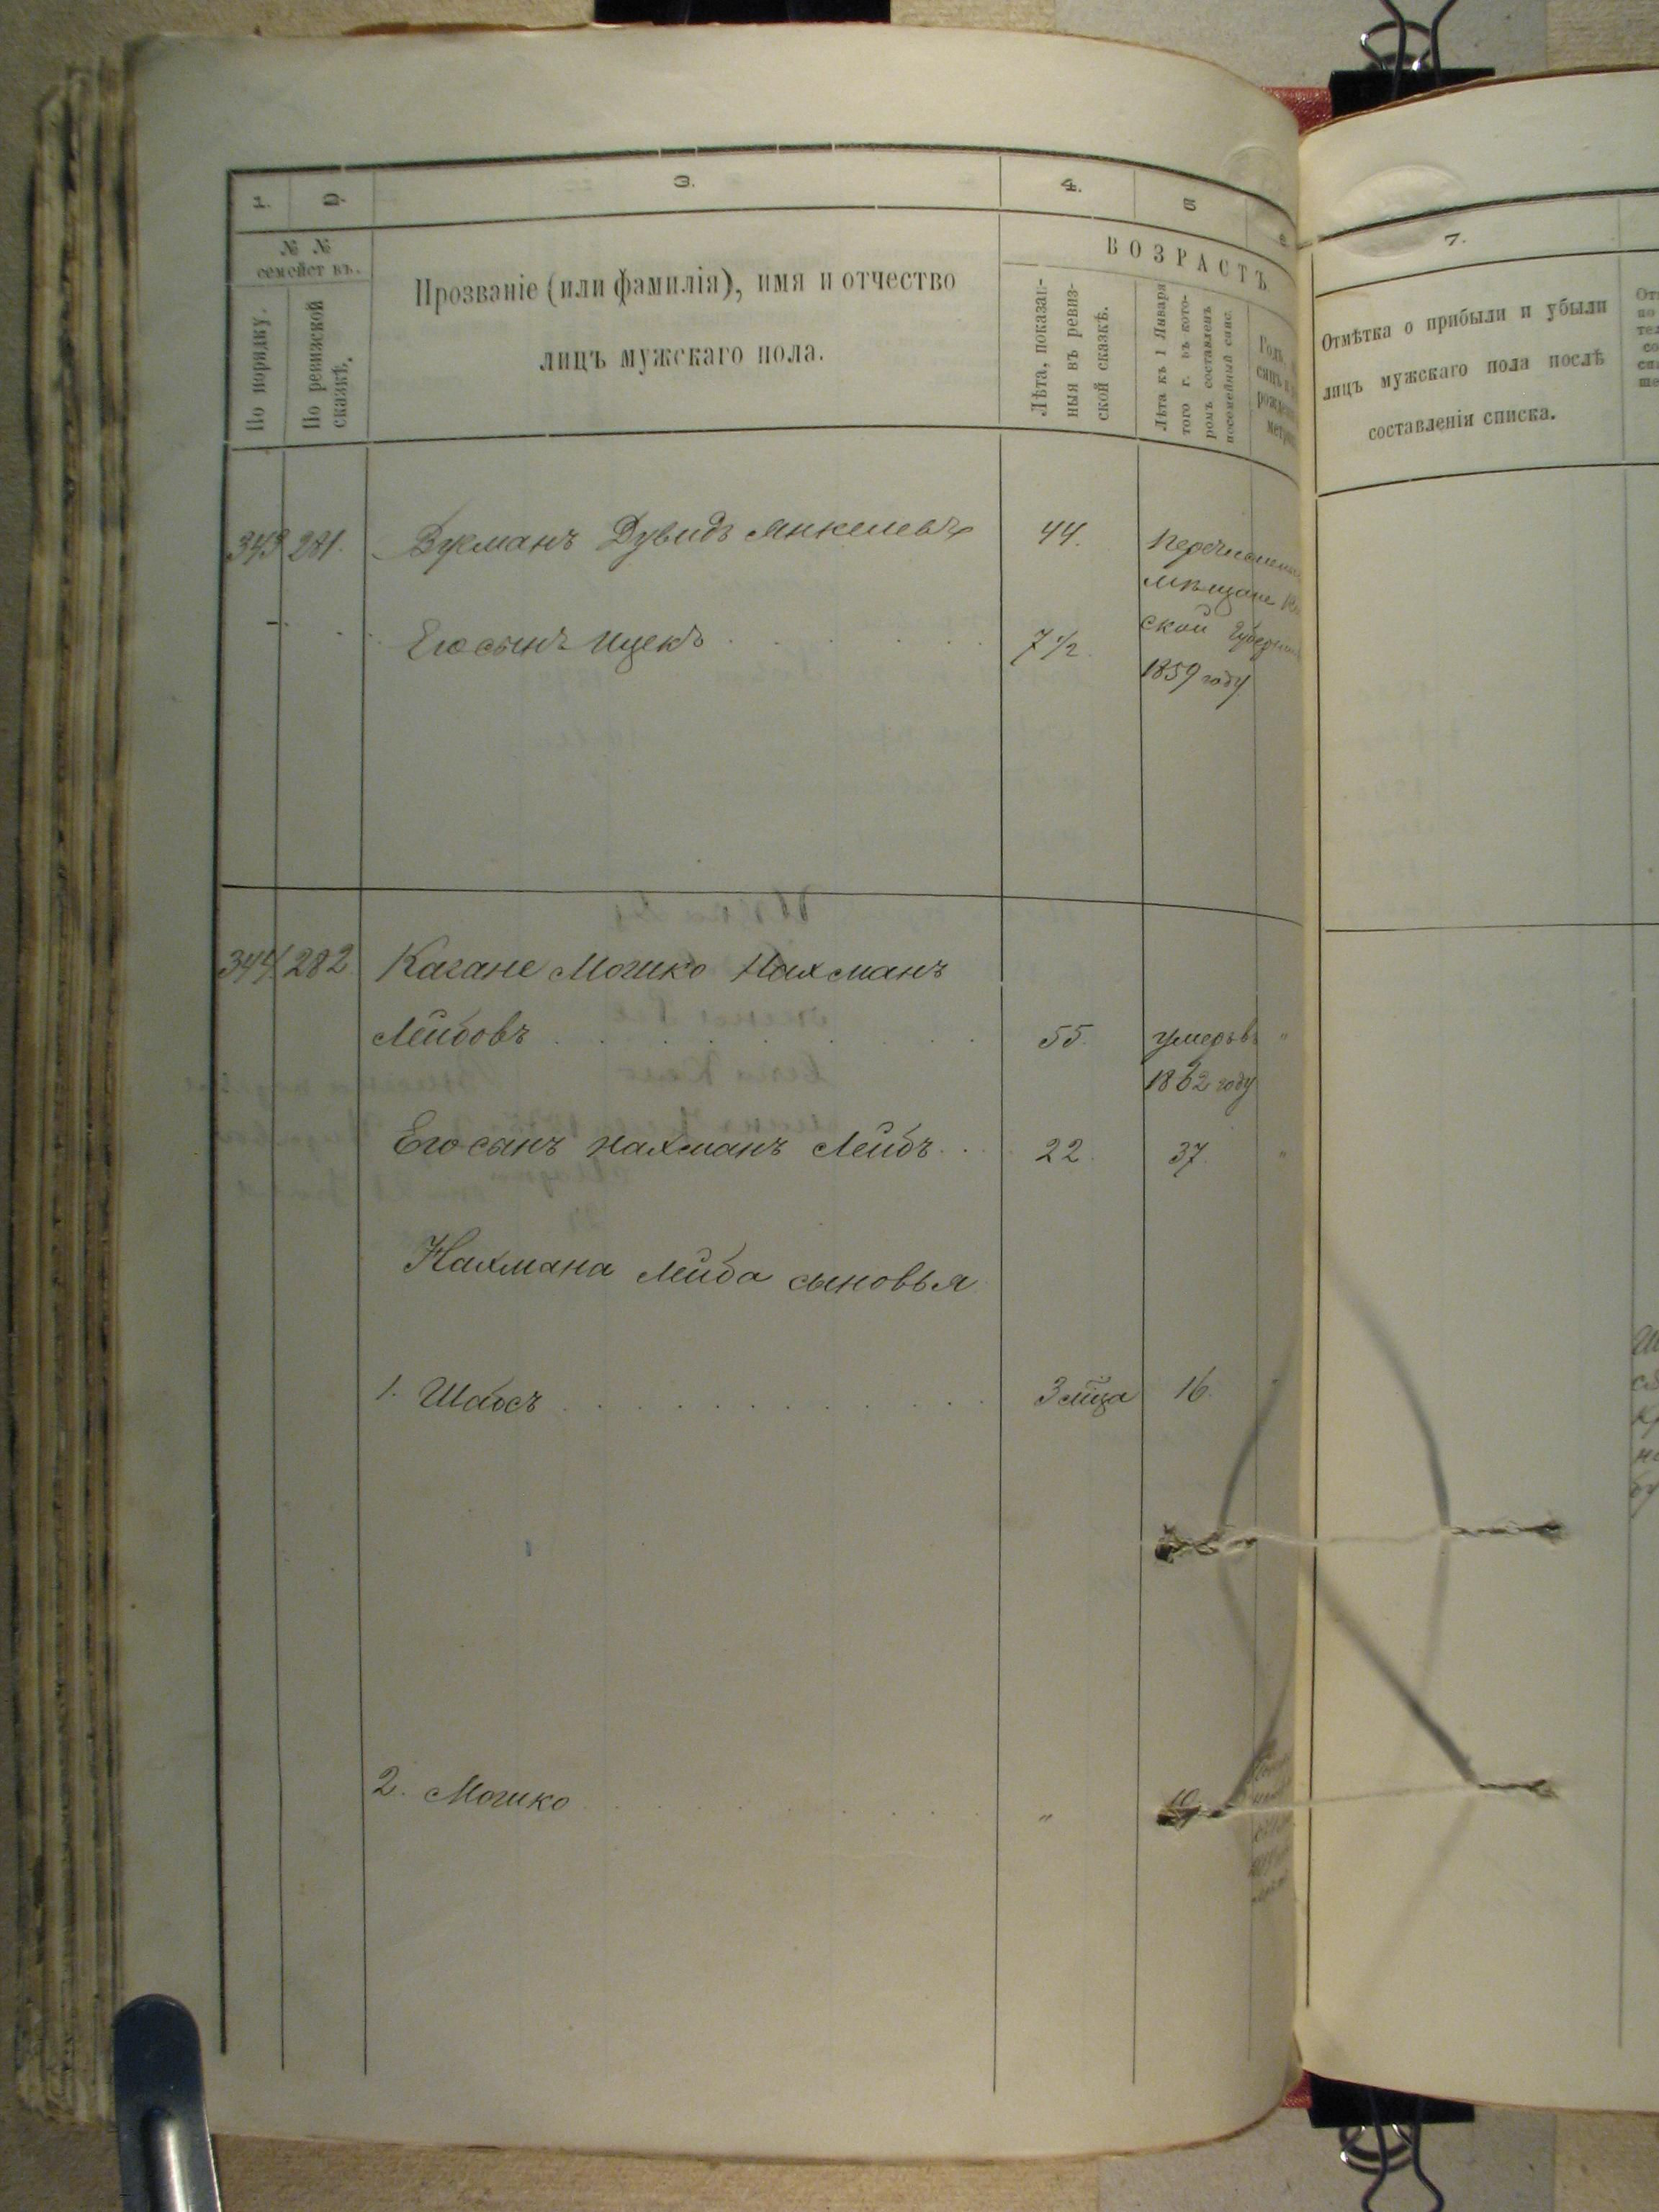 1. 2. 3. 4. 5 6
№ №
семействъ.
По порядку.
По ревизской
сказкѣ.
Прозваніе (или фамилія), имя и отчество
лицъ мужскаго пола.
ВОЗРАСТЪ
Лѣта, показан-
ныя въ ревиз-
ской сказкѣ.
Лѣта къ 1 Января
того г. въ кото-
ромъ составленъ
посемейный спис.
Годъ,
343 281. Дувидъ Янкелевъ 44.
Его сынъ Ицекъ 7 1/2.
мѣщане
ской Губерніи
1859 году
344 282 Кагане Мошко Нахманъ
Лейбовъ 55. умеръ въ "
1862 году
Его сынъ Нахманъ Лейбъ 22. 37. "
Нахмана Лейба сыновья
1. 3 мѣца 16.
2. Мошко " 10.
7.
Отмѣтка о прибыли и убыли
лицъ мужскаго пола послѣ
составленія списка.